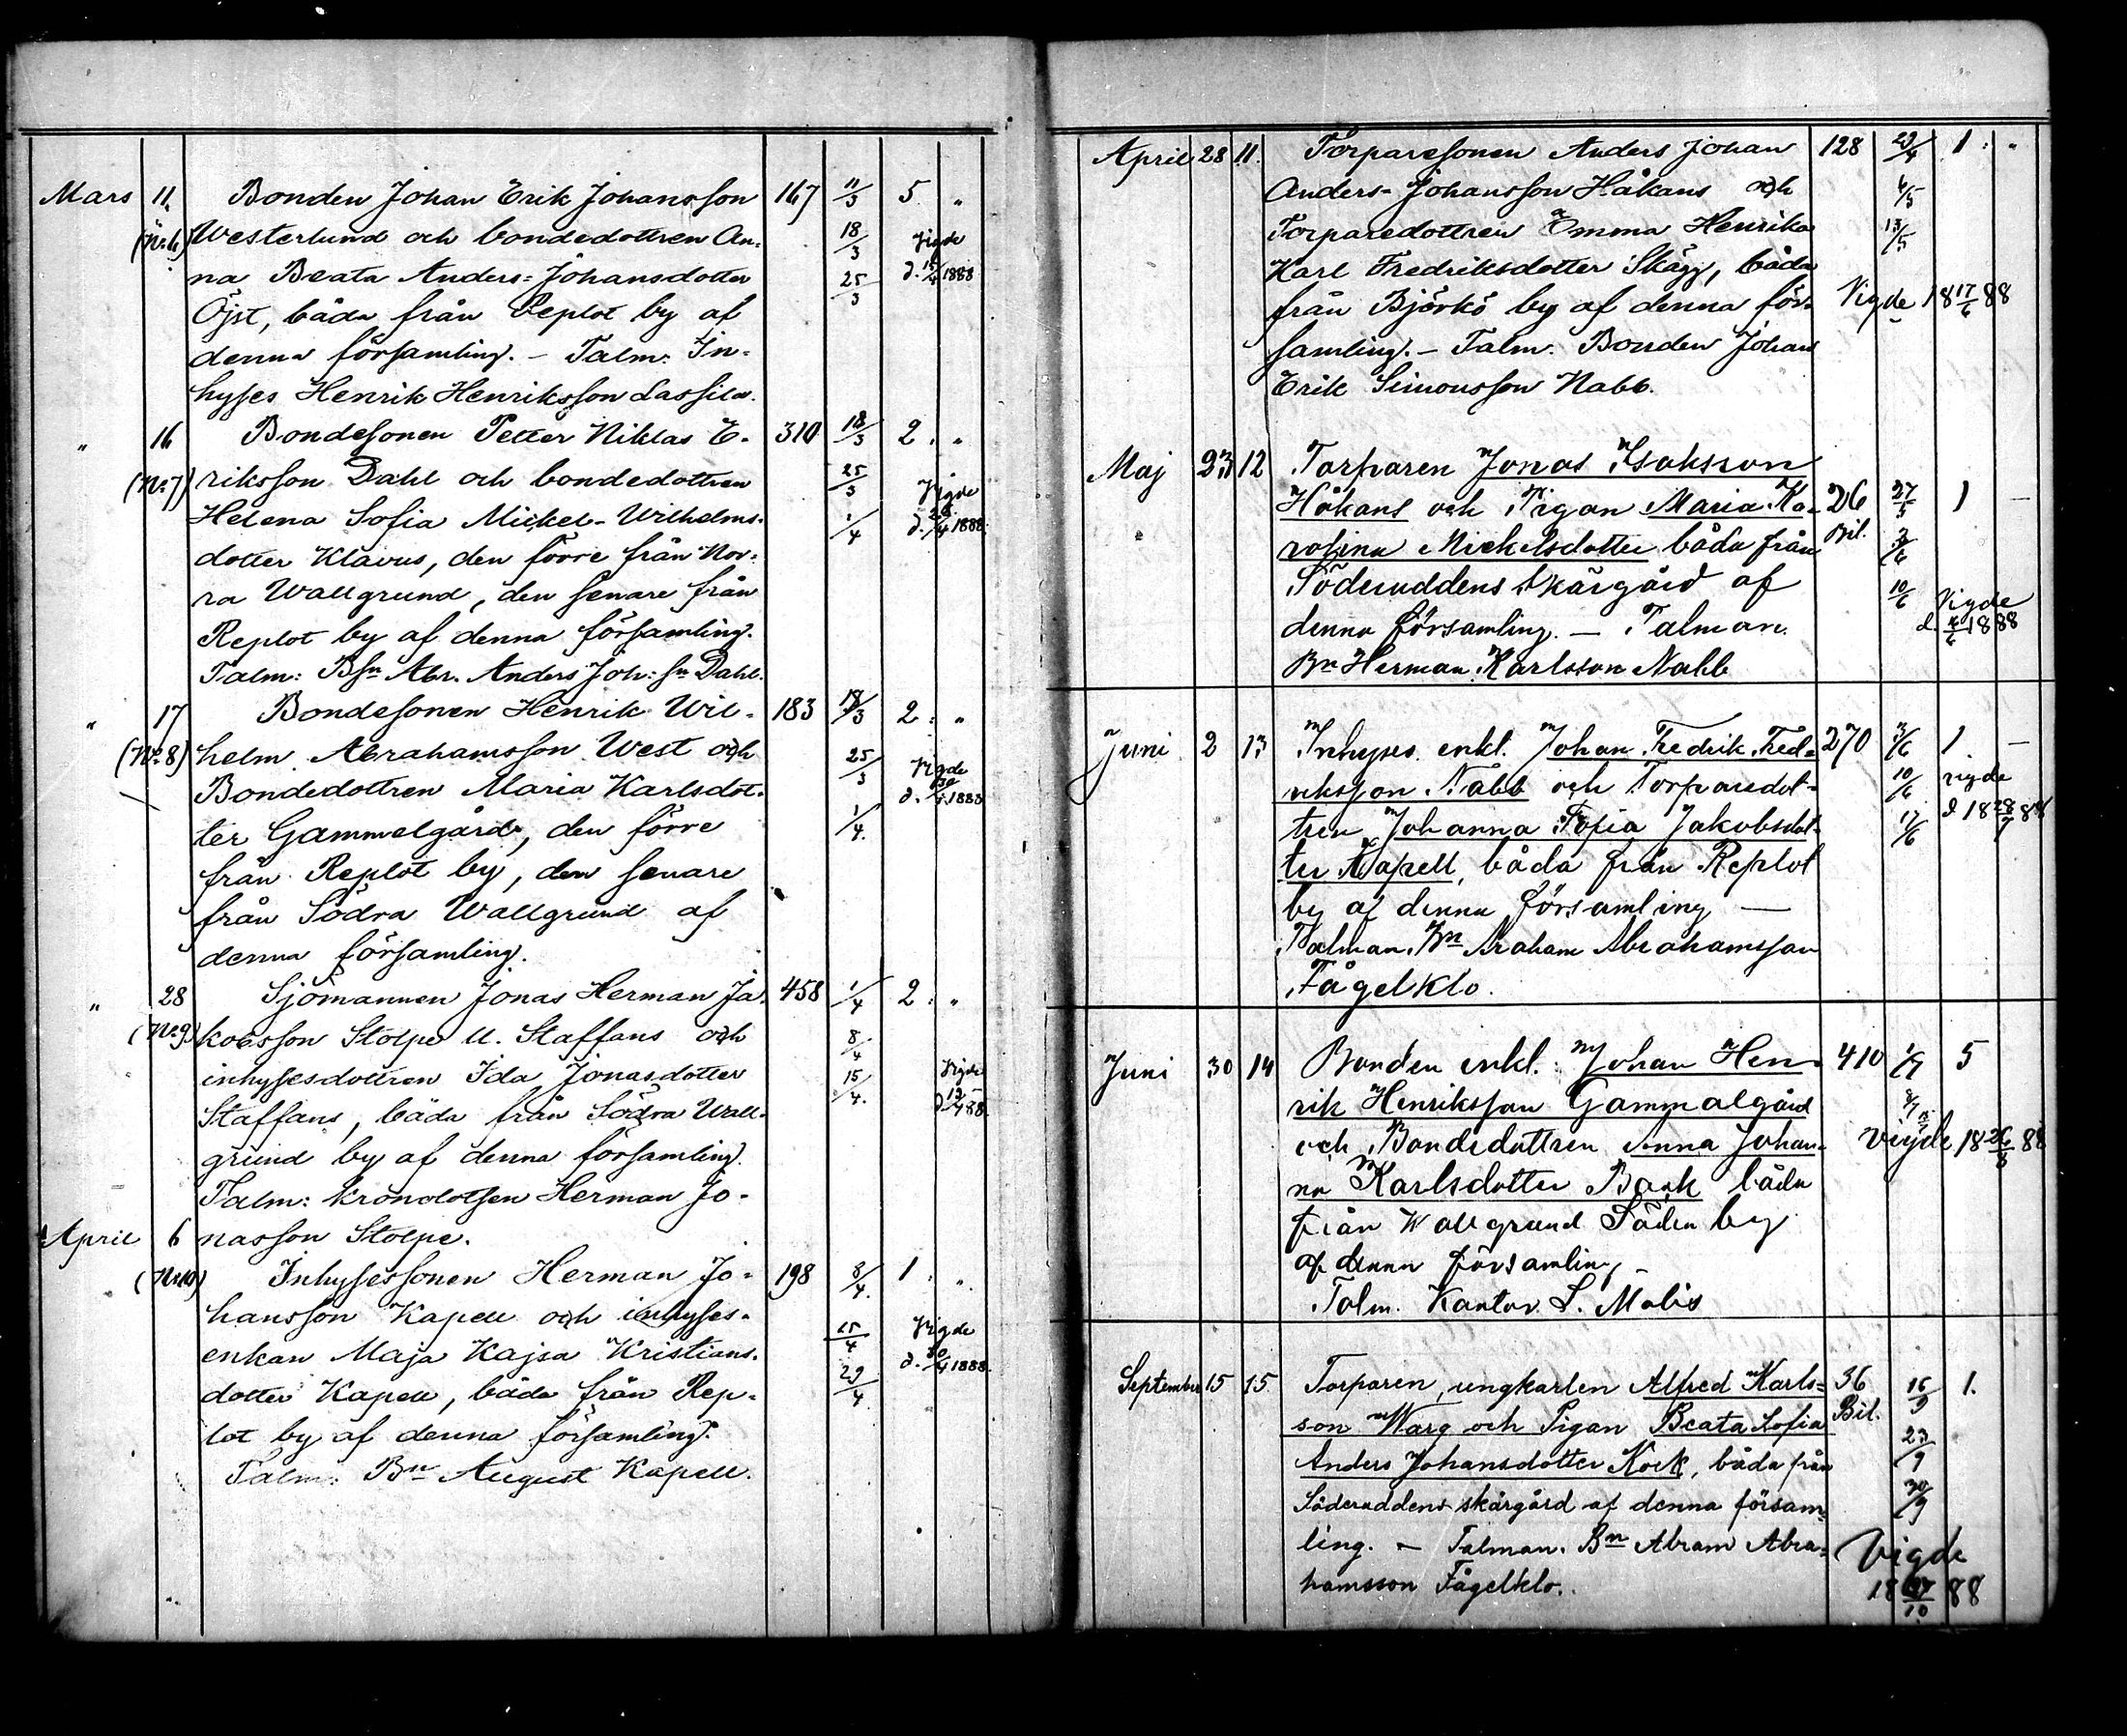 Mars 11. Bonden Johan Erik Johansson 167 11/3 5 "
(No 6) Westerlund och bondedottren An- 18/3 Vigde
na Beata Anders-Johansdotter 25/3 d. 15/4 1888
Öjst, båda från Replot by af
denna församling. – Talm: In-
hyses Henrik Henriksson Lassila.
" 16 Bondesonen Petter Niklas E- 310 18/3 2. "
(No 7) riksson Dahl och bondedottren 25/3 Vigde
Helena Sofia Mickel-Wilhelms- 1/4 d. 28/4 1888.
dotter Klavus, den förre från Nor-
ra Wallgrund, den senare från
Replot by af denna församling.
Talm: Bsn Abr. Anders Joh: sn Dahl.
" 17 Bondesonen Henrik Wil- 183 18/3 2. "
(No 8) helm Abrahamsson West och 25/3 Vigde
Bondedottren Maria Karlsdot- d. 30/4 1888
ter Gammelgård, den förre 1/4.
från Replot by, den senare
från Södra Wallgrund af
denna församling.
" 28 Sjömannen Jonas Herman Ja- 458 1/4 2. "
(No 9) kobsson Stolpe u. Staffans och 8/4
inhysesdottren Ida Jonasdotter 15/4. Vigde
Staffans, båda från Södra Wall- d. 15/4 88.
grund by af denna församling.
Talm: kronolotsen Herman Jo-
April 6 nasson Stolpe.
(No 10) Inhysessonen Herman Jo- 198 8/4. 1. "
hansson Kapell och inhyses- 15/4 Vigde
enkan Maja Kajsa Kristians- d. 30/4 1888.
dotter Kapell, båda från Rep- 29/4
lot by af denna församling.
Talm: Bn August Kapell.
April 28 11. Torparesonen Anders Johan 128 29/4 1. "
Anders-Johansson Håkans och 6/5
Torparedottren Emma Henrika 13/5
Karl Fredriksdotter Skägg, båda
från Björkö by af denna för- Vigde 18 17/6 88
samling. – Talm. Bonden Johan
Erik Simonsson Nabb.
Maj 23 12 Torparen Jonas Isaksson
Håkans och Pigan Maria Ka- 26 27/5 1 –
rolina Mickelsdotter båda från Bil. 3/6
Söderuddens skärgård af 10/6 Vigde
denna församling. – Talman. d. 1888
Bn Herman Karlsson Nabb
Juni 2 13 Inhyses enkl. Johan Fredrik Fred- 270 3/6 1. –
riksson Nabb och Torparedot- 10/6 vigde
tren Johanna Sofia Jakobsdot- 17/6 d 18 28/7 88
ter Kapell, båda från Replot
by af denna församling –
Talman. Bn Araham Abrahamsson
Fågelklo.
Juni 30 14 Bonden enkl. Johan Hen- 410 1/7 5
rik Henriksson Gammalgård 8/7
och Bondedottren Anna Johan- vigde 18 26/8 88
na Karlsdotter Back båda
från Wallgrund Södra by
af denna församling –
Talm. Kantor L. Malis
September 15 15. Torparen, ungkarlen Alfred Karls- 36 16/9 1.
son Warg och Pigan Beata Sofia Bil. 23/9
Anders Johansdotter Kock, båda från
Söderuddens skärgård af denna försam- 30/9
ling. – Talman. Bn Abram Abra- Vigde
hamsson Fågelklo. 18 88